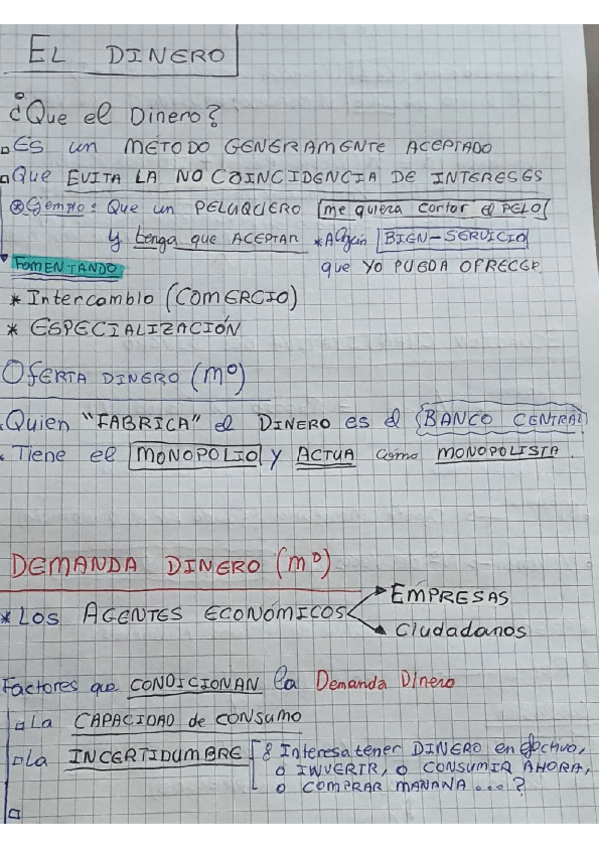 EL DINERO
¿Que el Dinero?
Es un METODO GENERAMENTE ACEPTADO
Que EVITA LA NO COINCIDENCIA DE INTERESES
Ejempro: Que un PELUQUERO me quiera cortar el PELO
y tenga que ACEPTAR *Algún BIEN-SERVICIO
que YO PUEDA OFRECER
FOMENTANDO
* Intercambio (COMERCIO)
* ESPECIALIZACIÓN
Oferta DINERO (mº)
Quien "FABRICA" el DINERO es el BANCO CENTRAL
Tiene el MONOPOLIO y ACTUA como MONOPOLISTA.
DEMANDA DINERO (mᴰ)
* LOS AGENTES ECONÓMICOS
EMPRESAS
Ciudadanos
Factores que CONDICIONAN la Demanda Dinero
La CAPACIDAD de CONSUMO
La INCERTIDUMBRE
¿Interesa tener DINERO en efectivo,
o INVERTIR, o CONSUMIR AHORA,
o COMPRAR MAÑANA...?